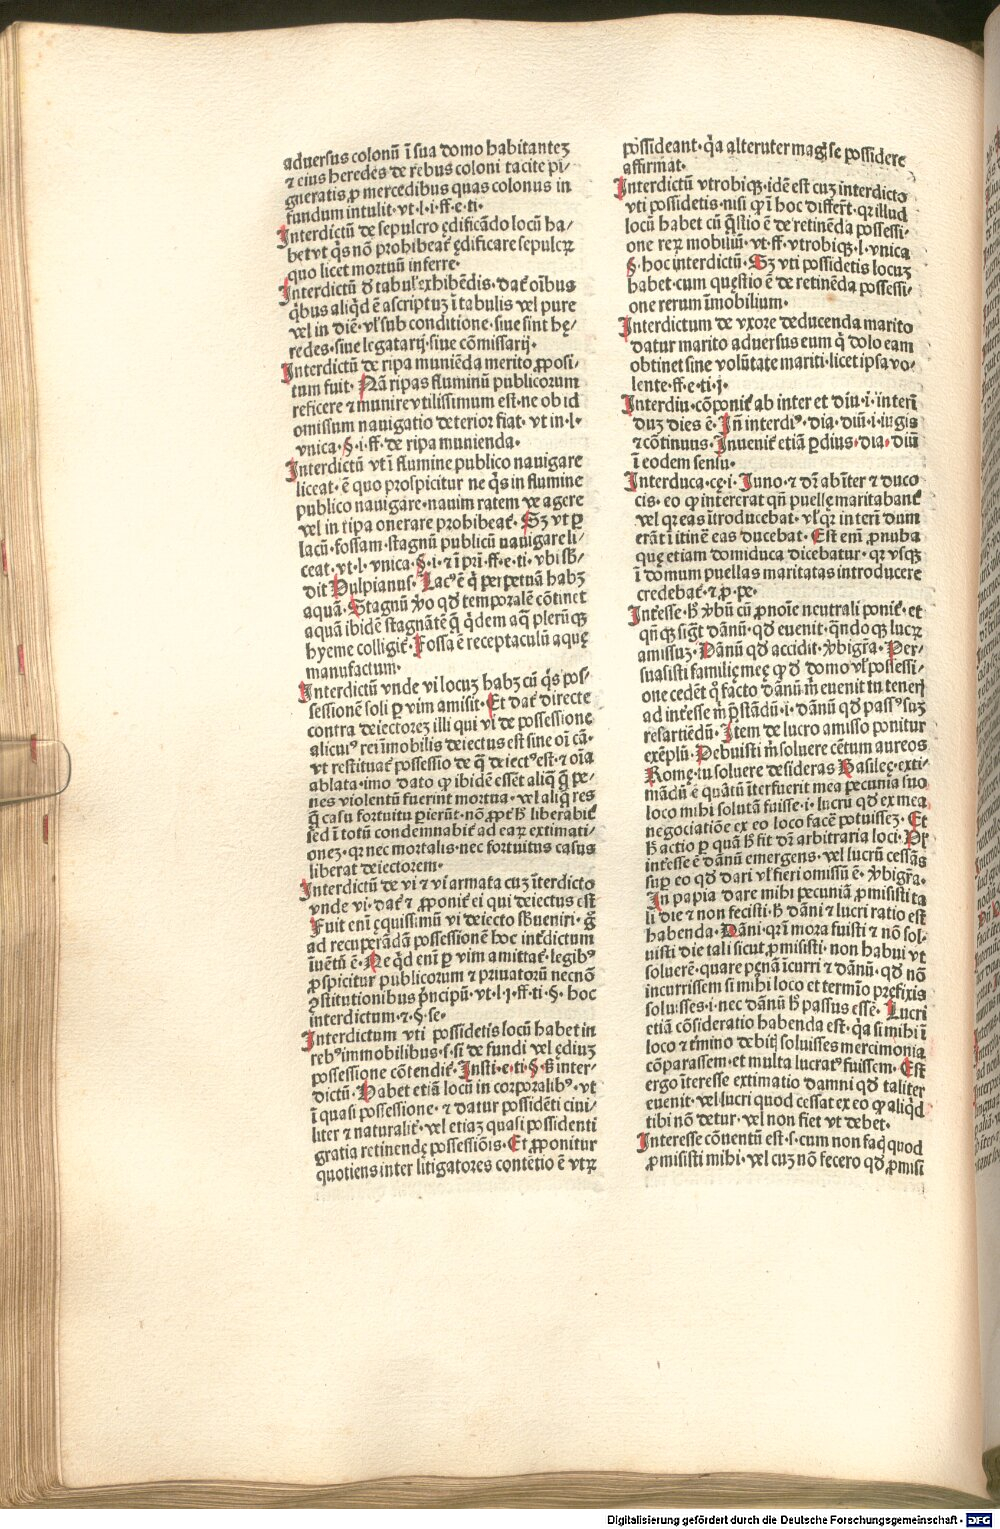 aduersus colonū ī sua domo habitantez
⁊ eius heredes de rebus coloni tacite pi-
gneratis ꝓ mercedibus quas colonus in
fundum intulit·vt·l·i·ff·e·ti·
Interdictū de sepulcro ędificādo locū ha-
bet vt q̄s nō prohibeat᷑ ędificare sepulcꝝ
quo licet mortuū inferre·
Interdictū ð tabul᷑ exhibēdis·dat᷑ oībus
q̄bus aliq̄d ē ascriptuz ī tabulis vel pure
vel in diē·vl᷑ sub conditione·siue sint hę-
redes·siue legatarij·siue cōmissarij·
Interdictū de ripa muniēda merito ꝓposi-
tum fuit·Nā ripas fluminū publicorum
reficere ⁊ munire vtilissimum est·ne ob id
omissum nauigatio deterior fiat·vt in·l·
vnica·§·i·ff·de ripa munienda·
Interdictū vt ī flumine publico nauigare
liceat·ē quo prospicitur ne q̄s in flumine
publico nauigare·nauim ratem ve agere
vel in ripa onerare prohibeat᷑·Sꝫ vt ꝑ
lacū·fossam·stagnū publicū nauigare li-
ceat·vt·l·vnica·§·i·⁊ ī prī·ff·e·ti·vbi sb̄-
dit Vulpianus·Lacꝰ ē q̄ perpetuā habꝫ
aquā·Stagnū v̄o qd̄ temporalē cōtinet
aquā ibidē stagnātē q̄ q̄dem aq̄ plerūqꝫ
hyeme colligit᷑·Fossa ē receptaculū aquę
manufactum·
Interdictū vnde vi locuz habꝫ cū q̄s pos-
sessionē soli ꝑ vim amisit·Et dat᷑ directe
contra deiectorez illi qui vi de possessione
alicuiꝰ rei īmobilis deiectus est sine oī cā·
vt restituat᷑ possessio de q̄ deiectꝰ est·⁊ oīa
ablata·imo dato qp ibidē essēt aliq̄ q̄ pe-
nes violentū fuerint mortua·vel aliq̄ res
q̄ casu fortuitu ꝑierūt·nō ꝓpt᷑ h̄ liberabit᷑
sed ī totū condemnabit᷑ ad eaꝝ extimati-
onez·qr nec mortalis·nec fortuitus casus
liberat deiectorem·
Interdictū de vi ⁊ vi armata cuz īterdicto
vnde vi·dat᷑ ⁊ ꝓponit᷑ ei qui deiectus est
Fuit enī ęquissimū vi deiecto sb̄ueniri·q̄
ad recuperādā possessionē hoc int᷑dictum
īuētū ē·Ne q̄d enī ꝑ vim amittat᷑·legibꝰ
ꝓspicitur publicorum ⁊ priuatorū necnō
ꝯstitutionibus p̄ncipū·vt·l·j·ff·ti·§·hoc
interdictum·⁊·§·se·
Interdictum vti possidetis locū habet in
rebꝰ immobilibus·s·si de fundi vel ędiuz
possessione cōtendit᷑·Insti·e·ti·§·ß inter-
dictū·Habet etiā locū in corporalibꝰ·vt
ī quasi possessione·⁊ datur possidēti ciui-
liter ⁊ naturalit᷑·vel etiaz quasi possidenti
gratia retinendę possessiōis·Et ꝓponitur
quotiens inter litigatores contētio ē vtꝝ
possideant·q̄a alteruter magꝭ se possidere
affirmat·
Interdictū vtrobiqꝫ·idē est cuz interdicto
vti possidetis·nisi qp ī hoc differt·qr illud
locū habet cū q̄stio ē de retinēda possessi-
one reꝝ mobiliū·vt·ff·vtrobiqꝫ·l·vnica
§·hoc interdictū·Sꝫ vti possidetis locuz
habet·cum quęstio ē de retinēda possessi-
one rerum īmobilium·
Interdictum de vxore deducenda marito
datur marito aduersus eum q̄ dolo eam
obtinet sine volūtate mariti·licet ipsa vo-
lente·ff·e·ti·j·
Interdiu·cōponit᷑ ab inter et diu·i·interī
duz dies ē·Iñ interdiꝰ·dia·diū·i·iugis
⁊ cōtinuus·Inuenit᷑ etiā ꝑdius·dia·diū
ī eodem sensu·
Interduca·cę·i·Iuno·⁊ dr̄ ab īter ⁊ duco
cis·eo qp intercrat qn̄ puellę maritabant᷑
vel qr eas ītroducebat·vl᷑ qr in terī dum
erāt ī itinē eas ducebat·Est enī ꝓnuba
quę etiam domiduca dicebatur·qr vsqꝫ
ī domum puellas maritatas introducere
credebat᷑·⁊ ꝓ·pe·
Int᷑esse·h̄ v̄bū cū ꝓnoīe neutrali ponit᷑·et
qn̄ qꝫ sigt̄ dānū·qd̄ euenit·qn̄do qꝫ lucꝝ
amissuz·Dānū qd̄ accidit·v̄bigr̄a·Per-
suasisti familię meę qp d̄ domo vl᷑ possessi-
one cedēt q̄ facto dānū m̄ euenit tu tenerj
ad int᷑esse m̄ p̄stādū·i·dānū qd̄ passꝰ suz
resartiēdū·Item de lucro amisso ponitur
exēplū·Debuisti m̄ soluere cētum aureos
Romę·tu soluere desideras Basileę·exti-
mādū ē quātū īterfuerit mea pecunia suo
loco mihi solutā fuisse·i·lucrū qd̄ ex mea
negociatiōe ex eo loco facē potuissez·Et
h̄ actio ꝑ quā h̄ fit dr̄ arbitraria loci·Vl᷑
int᷑esse ē dānū emergens·vel lucrū cessās
suꝑ eo qd̄ dari vl᷑ fieri omissū ē·v̄bigr̄a·
In papia dare mihi pecuniā ꝓmisisti ta
li die ⁊ non fecisti·h̄ dāni ⁊ lucri ratio est
habenda·Dāni·qr ī mora fuisti ⁊ nō sol-
uisti die tali sicut ꝓmisisti·non habui vt
soluerē·quare pęnā īcurri ⁊ dānū·qd̄ nō
incurrissem si mihi loco et termīo pręfixis
soluisses·i·nec dānū h̄ passus essē·Lucri
etiā cōsideratio habenda est·q̄a si mihi ī
loco ⁊ t᷑mino debitj soluisses mercimonia
cōparassem·et multa lucratꝰ fuissem·Est
ergo īteresse extimatio damni qd̄ taliter
euenit·vel lucri quod cessat ex eo qp aliq̄d
tibi nō detur·vel non fiet vt debet·
Interesse cōuentū est·s·cum non faq̄ quod
ꝓmisisti mihi·vel cuz nō fecero qd̄ ꝓmisi
Digitalisierung gefördert durch die Deutsche Forschungsgemeinschaft - DFG